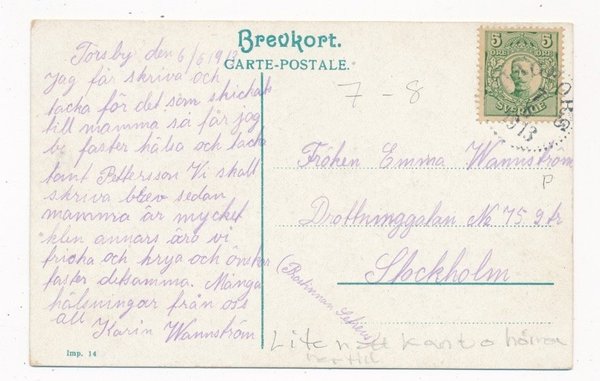 Brevkort.
CARTE-POSTALE.
Torsby den 6/6 1913
Jag får skriva och
tacka för det som skickats
till mamma så får jag
be faster hälsa och tacka
tant Pettersson Vi skall
skriva brev sedan
mamma är mycket
klen annars äro vi
friska och krya och önskar
faster detsamma. Många
hälsningar från oss
all
Karin Wannström
Imp. 14
7-8
5 5
SVERIGE
1913
Fröken Emma Wannström
P
Drottninggatan No 75 2 tr
Stockholm
Litet kant o hörn